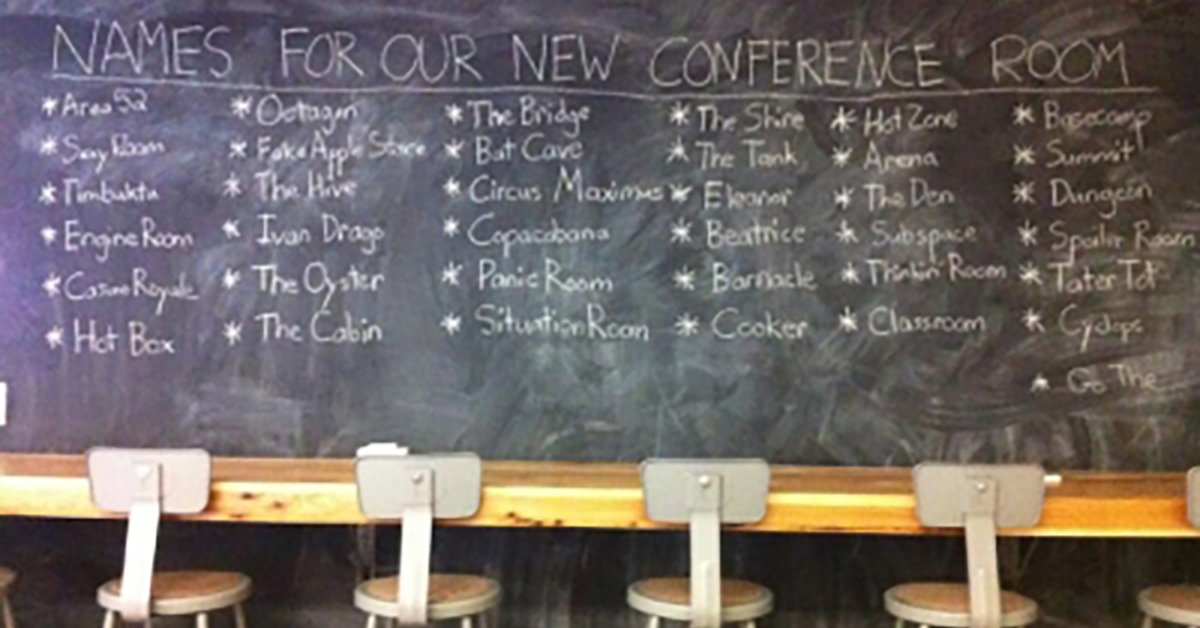 NAMES FOR OUR NEW CONFERENCE ROOM
* Area 52
* Sexy Room
* Timbuktu
* Engine Room
* Casino Royale
* Hot Box
* Octagon
* Fake Apple Store
* The Hive
* Ivan Drago
* The Oyster
* The Cabin
* The Bridge
* Bat Cave
* Circus Maximus
* Copacabana
* Panic Room
* Situation Room
* The Shire
* The Tank
* Eleanor
* Beatrice
* Barnacle
* Cooker
* Hot Zone
* Arena
* The Den
* Subspace
* Thinkin' Room
* Classroom
* Basecamp
* Summit
* Dungeon
* Spoiler Room
* Tater Tot
* Cyclops
* Go The